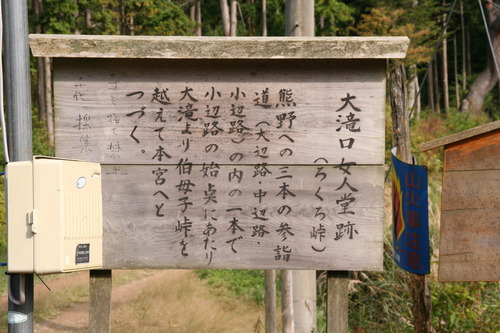 大滝口女人堂跡
（ろくろ峠）
熊野への三本の参詣
道（大辺路・中辺路・
小辺路）の内の一本で
小辺路の始点にあたり
大滝より伯母子峠を
越えて本宮へと
つづく。